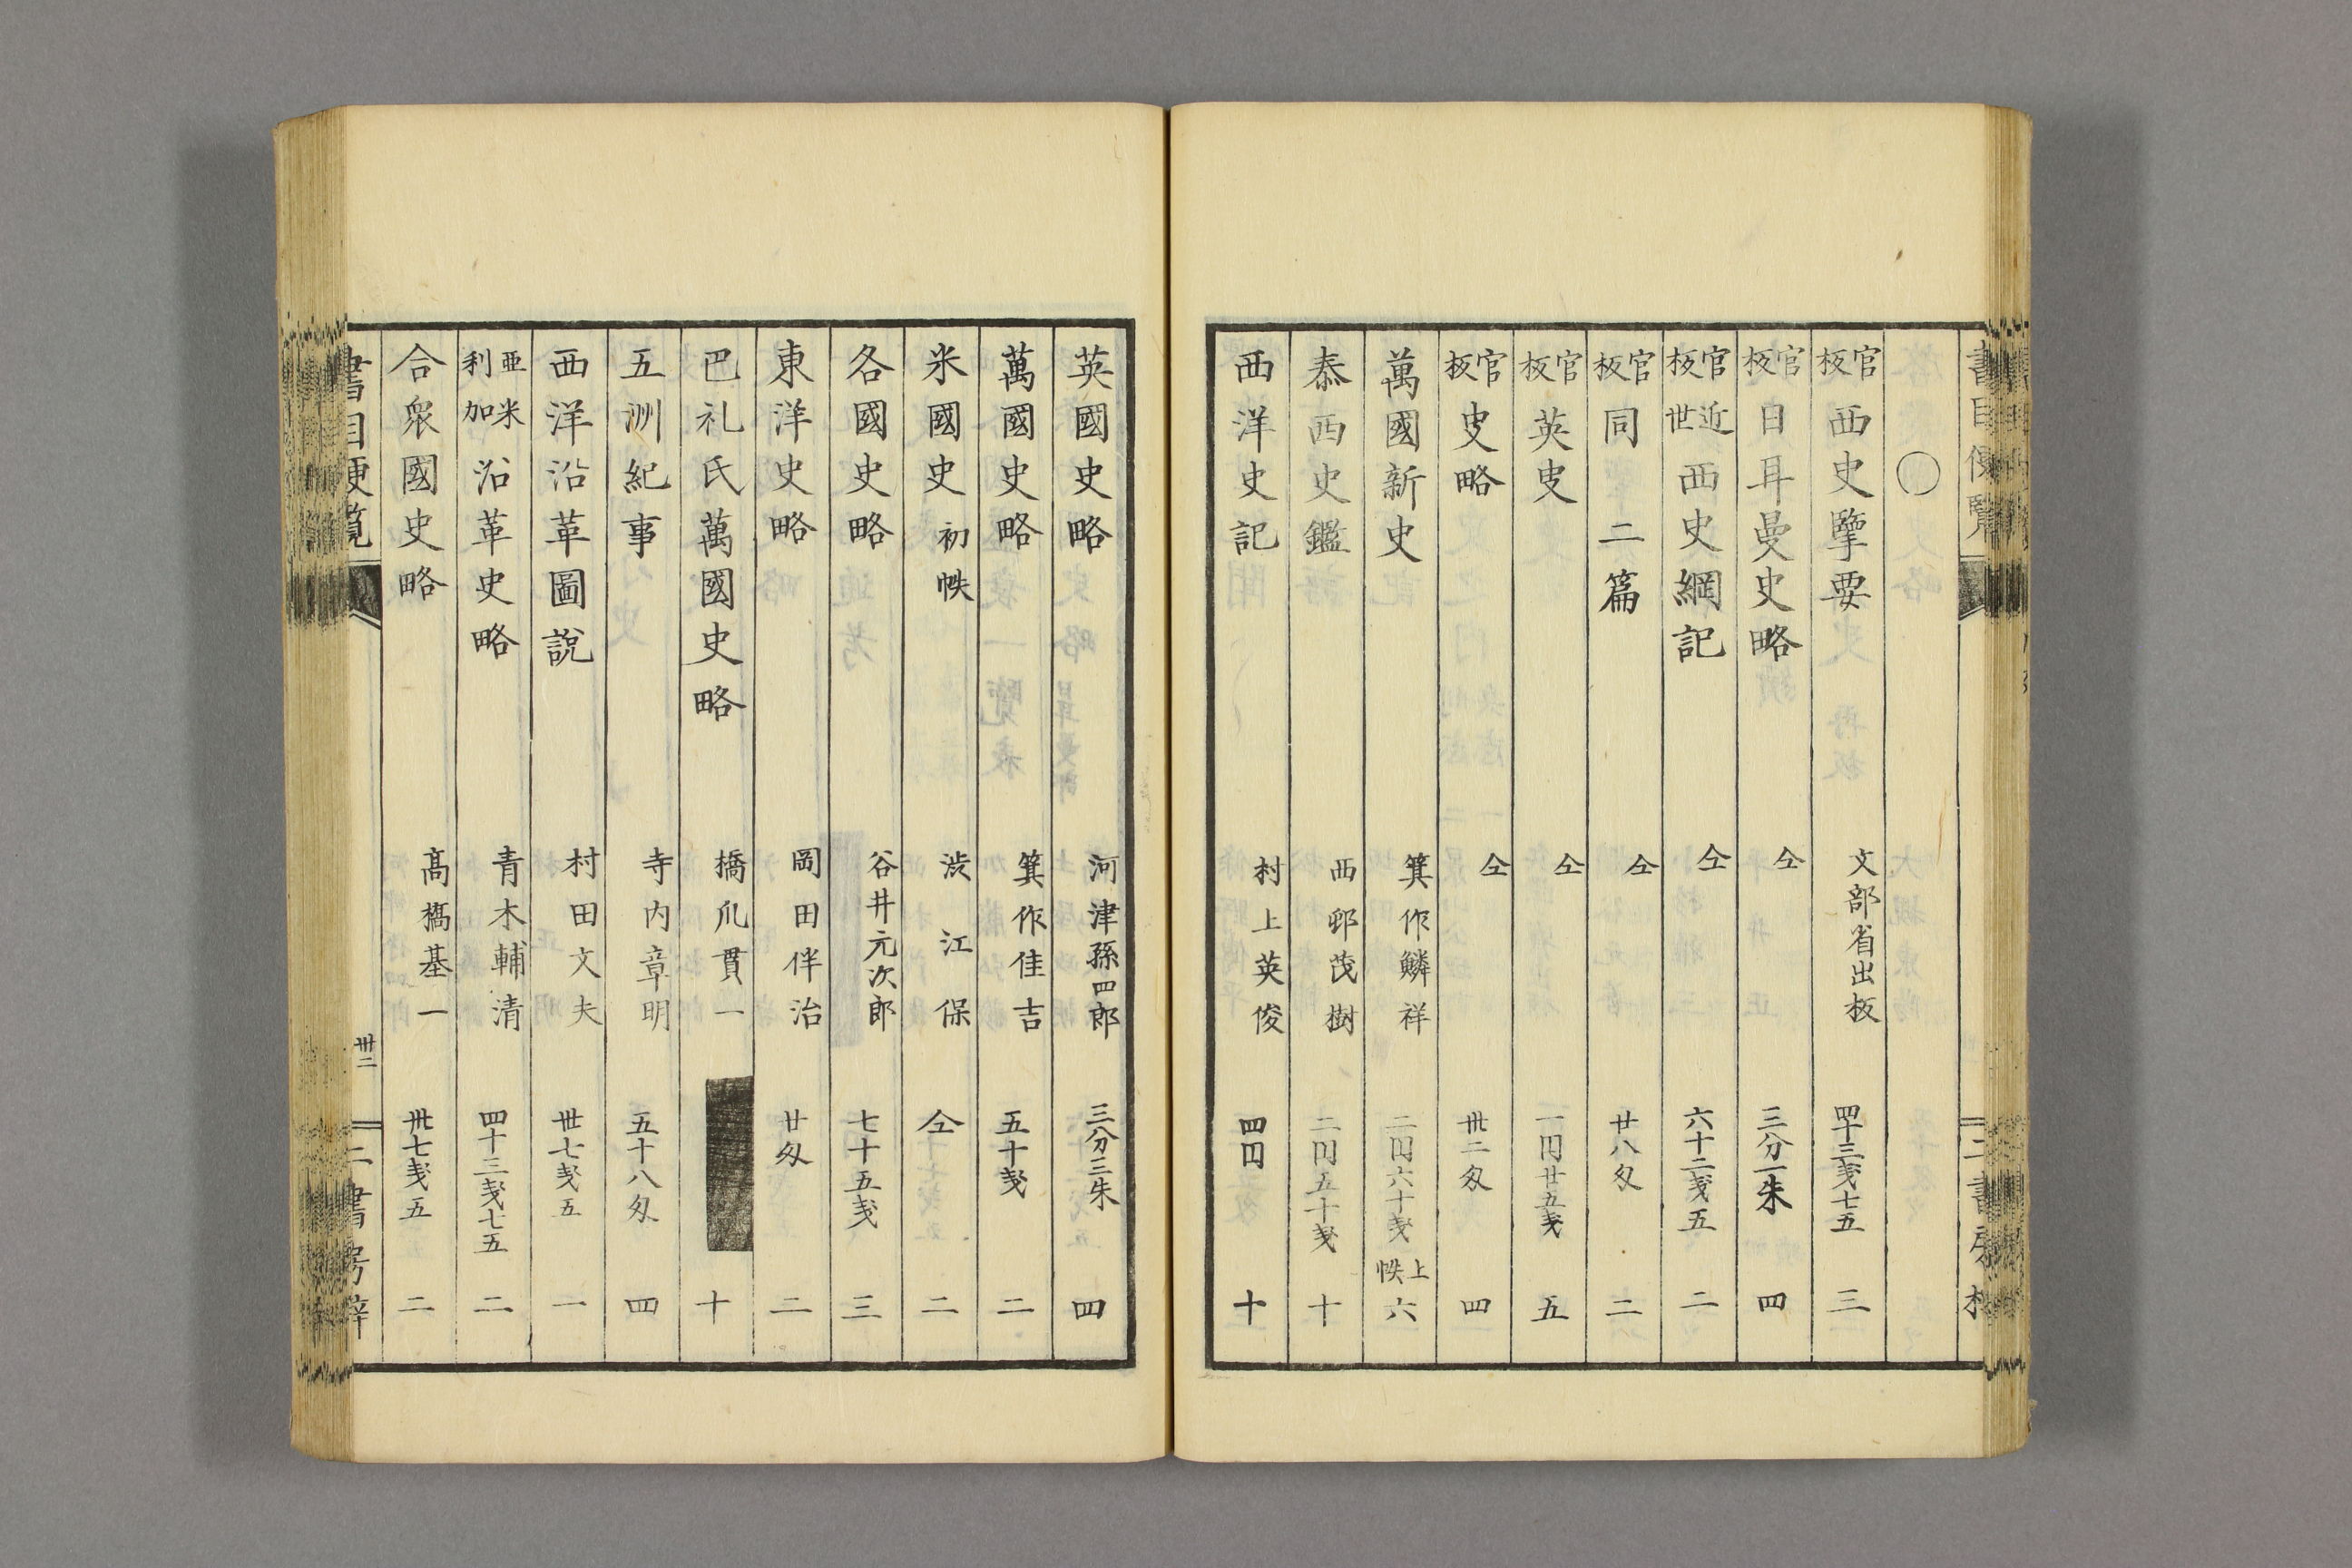 書目便覧
二書房
〇
官板 西史擥要 文部省出板 四十三戔七五 三
官板 日耳曼史略 仝 三分一朱 四
官板 近世 西史綱記 仝 六十二戔五 二
官板 同 二篇 仝 廿八匁 二
官板 英史 仝 一円廿五戔 五
官板 史略 仝 卅二匁 四
萬國新史 箕作鱗祥 二円六十戔 上帙 六
泰西史鑑 西邨茂樹 二円五十戔 十
西洋史記 村上英俊 四円 十
英國史略 河津孫四郎 三分三朱 四
萬國史略 箕作佳吉 五十戔 二
米國史 初帙 渋江保 仝 二
各國史略 谷井元次郎 七十五戔 三
東洋史略 岡田伴治 廿匁 二
巴礼氏萬國史略 橋爪貫一 十
五洲紀事 寺内章明 五十八匁 四
西洋沿革圖説 村田文夫 卅七戔五 一
亜米利加 沿革史略 青木輔清 四十三戔七五 二
合衆國史略 髙橋基一 卅七戔五 二
書目便覧 卅二 二書房梓